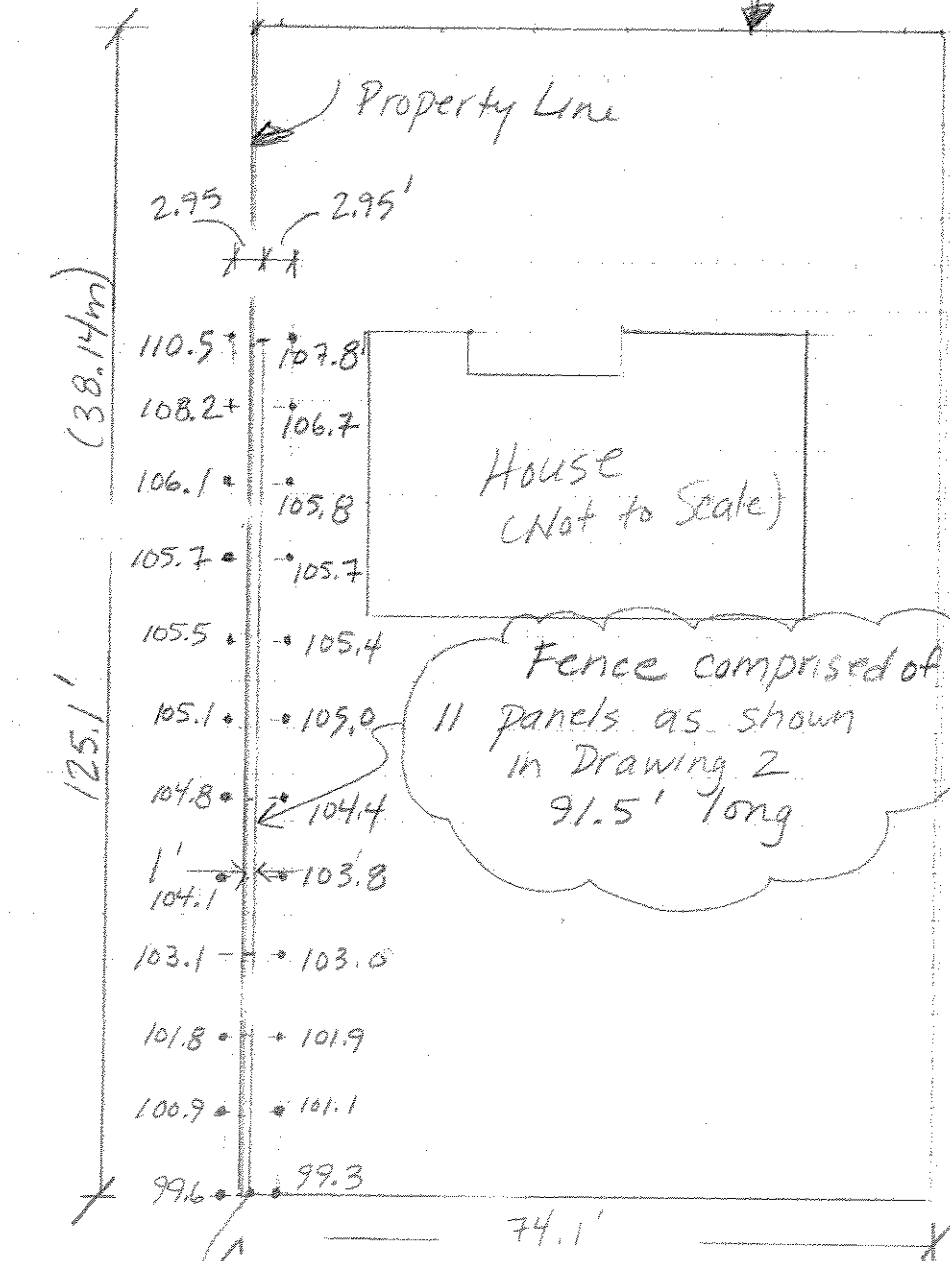 Property Line
2.95 2.95'
(38.14m)
125.1'
110.5 107.8'
108.2 106.7
106.1 105.8
105.7 105.7
105.5 105.4
105.1 105.0
104.8 104.4
1'
104.1 103.8
103.1 103.0
101.8 101.9
100.9 101.1
99.6 99.3
House
(Not to Scale)
Fence comprised of
11 panels as shown
in Drawing 2
91.5' long
74.1'